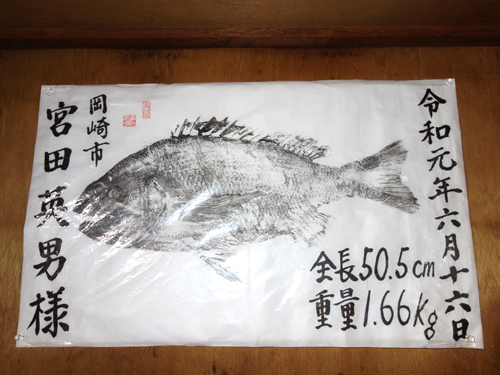 令和元年六月十六日
全長50.5cm
重量1.66Kg
岡崎市
宮田英男様